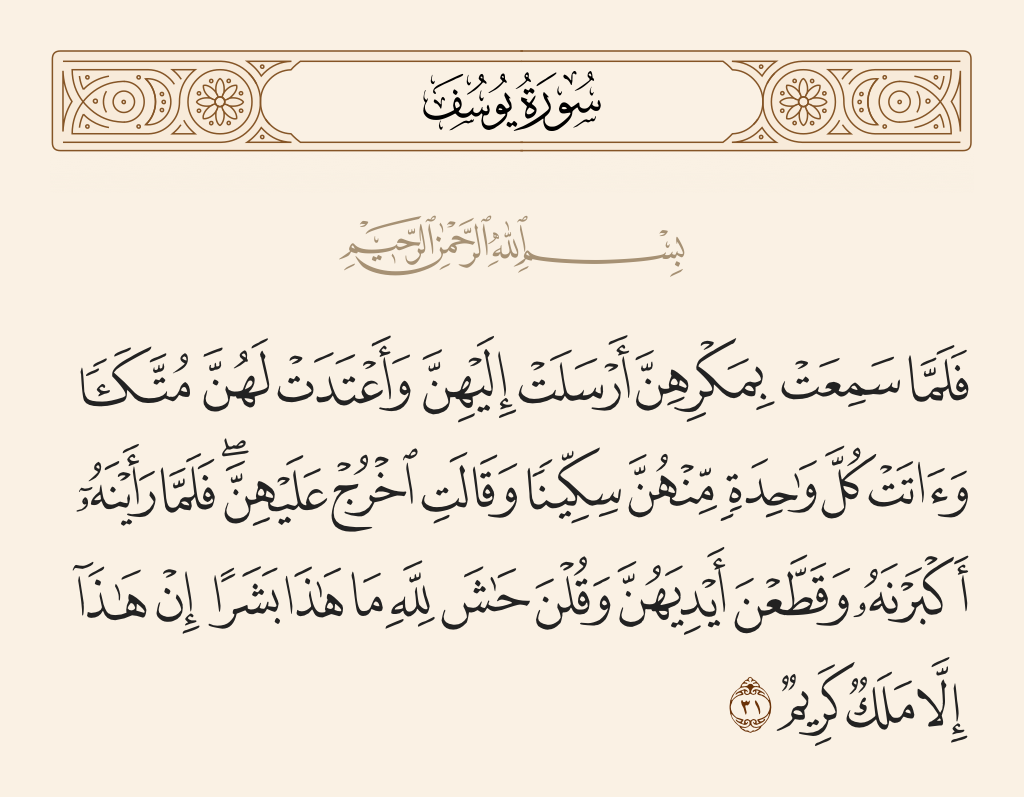 سُورَةُ يُوسُفَ
بِسْمِ ٱللَّهِ ٱلرَّحْمَٰنِ ٱلرَّحِيمِ
فَلَمَّا سَمِعَتْ بِمَكْرِهِنَّ أَرْسَلَتْ إِلَيْهِنَّ وَأَعْتَدَتْ لَهُنَّ مُتَّكَـًٔا
وَءَاتَتْ كُلَّ وَٰحِدَةٍ مِّنْهُنَّ سِكِّينًا وَقَالَتِ ٱخْرُجْ عَلَيْهِنَّ ۖ فَلَمَّا رَأَيْنَهُۥٓ
أَكْبَرْنَهُۥ وَقَطَّعْنَ أَيْدِيَهُنَّ وَقُلْنَ حَٰشَ لِلَّهِ مَا هَٰذَا بَشَرًا إِنْ هَٰذَآ
إِلَّا مَلَكٌ كَرِيمٌ ٣١